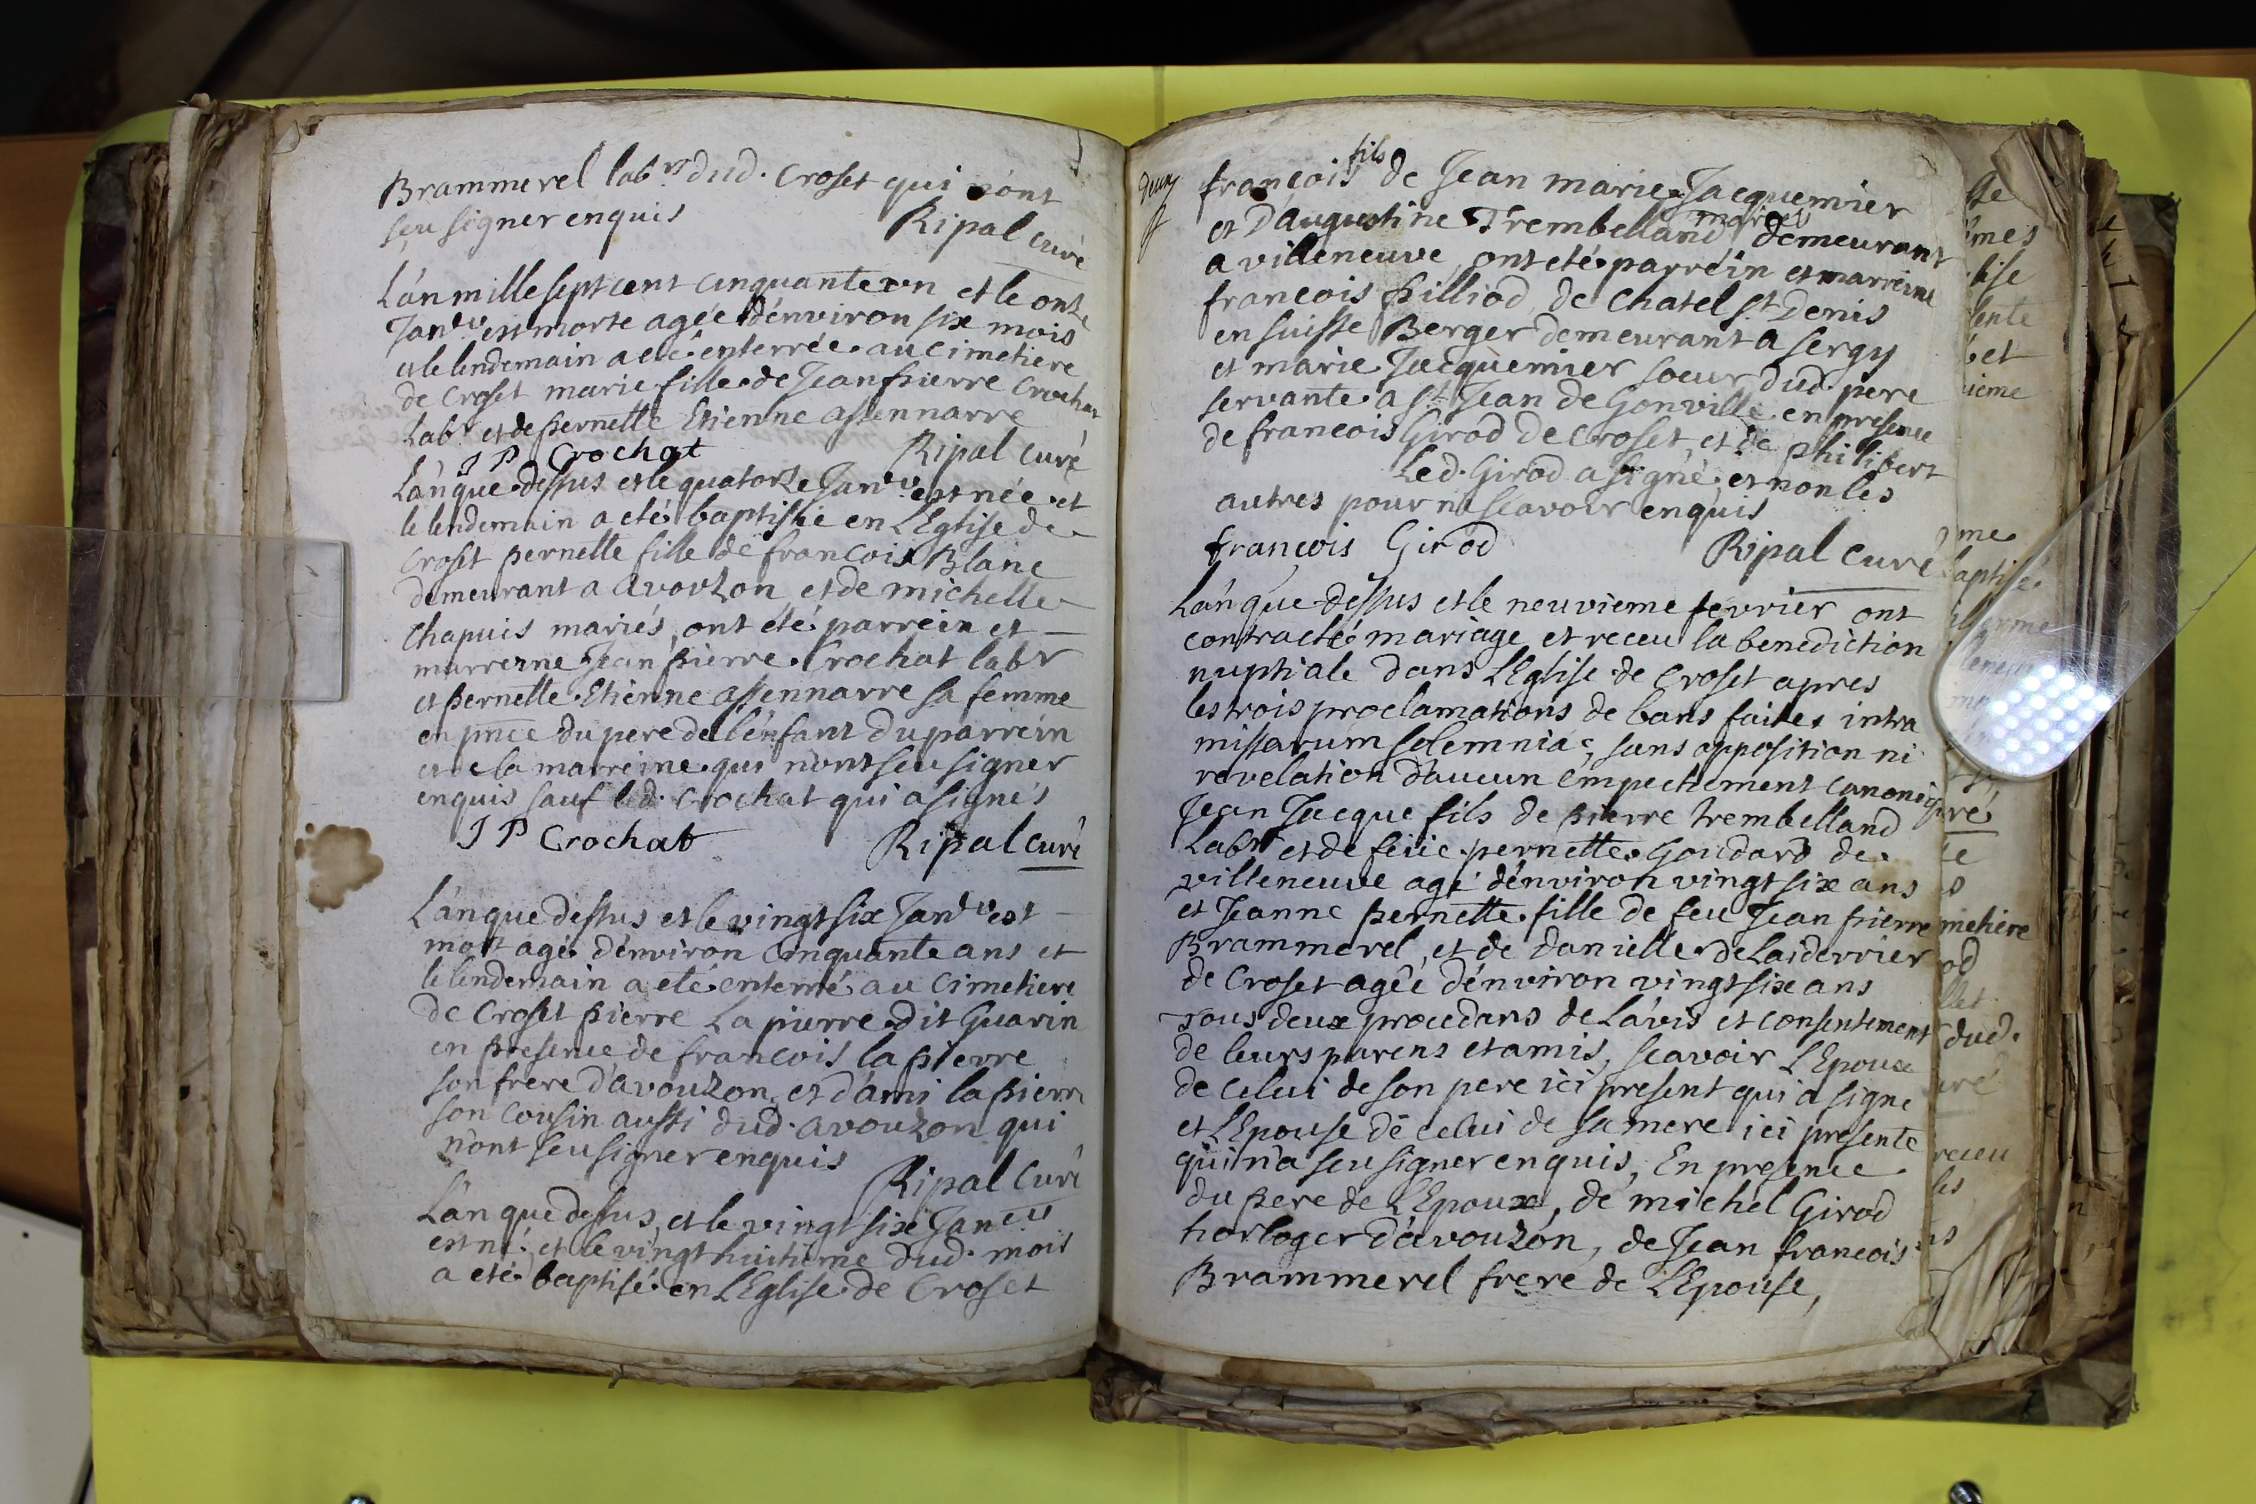 Brammerel labr dud. Croset qui n'ont
sçu signer enquis
Ripal curé
L'an mille sept cent cinquante un et le onze
Janvr est morte agée d'énviron six mois
et le lendemain a eté enterrée au cimetiere
de Croset marie fille de Jean pierre Crochat
Labr et de pernette Etienne assennarre
J P Crochat
Ripal curé
L'an que dessus et le quatorze Janvr est née et
le lendemain a eté baptisée en L'Eglise de
Croset pernette fille de francois Blanc
demeurant a avouzon et de michelle
Chapuis mariés, ont été parrein et
marreine Jean pierre Crochat labr
et pernette Etienne assennarre sa femme
en pnce du pere de l'énfant du parréin
et de la marreine qui n'ont sçu signer
enquis sauf led. Crochat qui a signés
J P Crochat
Ripal curé
L'an que dessus et le vingt six Janvr est
mort agé d'énviron cinquante ans et
le lendemain a eté enterré au Cimetiere
de Croset pierre La pierre dit Guarin
en presence de francois la pierre
son frere d'avouzon, et d'ami la pierre
son cousin aussi dud. avouzon qui
n'ont sçu signer enquis
Ripal curé
L'an que dessus, et le vingt six Janvr
est né et le vingt huitieme dud. mois
a eté baptisé en L'Eglise de Croset
deux
françois fils de Jean marie Jacquemier
et D'augustine Trembelland mariés demeurant
a villeneuve, ont eté parréin et marreine
francois pilliod de Chatel st Denis
en suisse Berger demeurant a sergy
et marie Jacquemier soeur dud. pere
servante a st Jean de Gonville en presence
de francois Girod de Croset, et de philibert
Led. Girod a signé et non les
autres pour ne scavoir enquis
françois Girod
Ripal curé
L'an que dessus et le neuvieme fevrier ont
contracté mariage et receu la benediction
nuptiale dans L'Eglise de Croset apres
les trois proclamations de bans faites intra
missarum solemnia, sans opposition ni
revelation d'aucun empechement canoniq
Jean Jacque fils de pierre trembelland
Labr et de feüe pernette Goudard de
villeneuve agé d'énviron vingt six ans
et Jeanne pernette fille de feu Jean pierre
Brammerel, et de Danielle de Laiderrier
de Croset agée d'énviron vingt six ans
tous deux procedans de L'avis et consentement
de leurs parens et amis, scavoir L'Epoux
de celui de son pere ici present qui a signé
et L'Epouse de celui de sa mere ici presente
qui n'a sçu signer enquis, En presence
du pere de L'Epoux, de michel Girod
horloger d'avouzon, de Jean francois
Brammerel frere de L'Epouse,